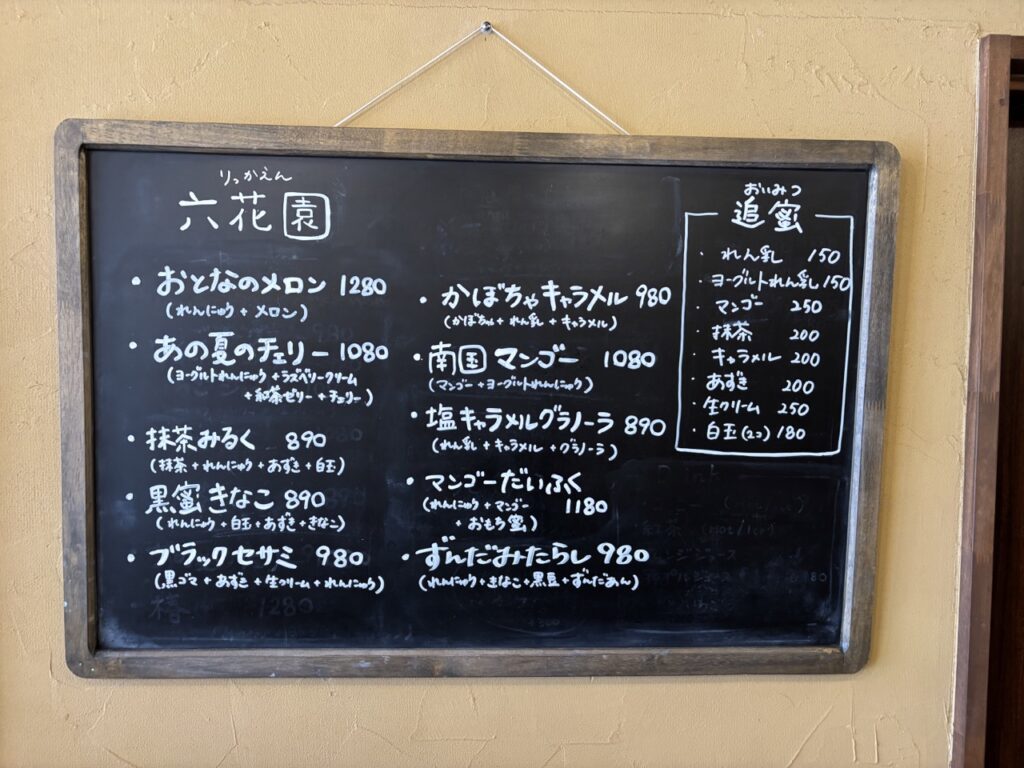 りっかえん
六花園
・おとなのメロン 1280
(れんにゅう + メロン)
・あの夏のチェリー 1080
(ヨーグルトれんにゅう + ラズベリークリーム
+ 紅茶ゼリー + チェリー)
・抹茶みるく 890
(抹茶 + れんにゅう + あずき + 白玉)
・黒蜜きなこ 890
(れんにゅう + 白玉 + あずき + きなこ)
・ブラックセサミ 980
(黒ゴマ + あずき + 生クリーム + れんにゅう)
・かぼちゃキャラメル 980
(かぼちゃ + れん乳 + キャラメル)
・南国マンゴー 1080
(マンゴー + ヨーグルトれんにゅう)
・塩キャラメルグラノーラ 890
(れん乳 + キャラメル + グラノーラ)
・マンゴーだいふく
(れんにゅう + マンゴー 1180
+ おもち蜜)
・ずんだみたらし 980
(れんにゅう + きなこ + 黒豆 + ずんだあん)
おいみつ
追蜜
・れん乳 150
・ヨーグルトれん乳 150
・マンゴー 250
・抹茶 200
・キャラメル 200
・あずき 200
・生クリーム 250
・白玉(2コ) 180